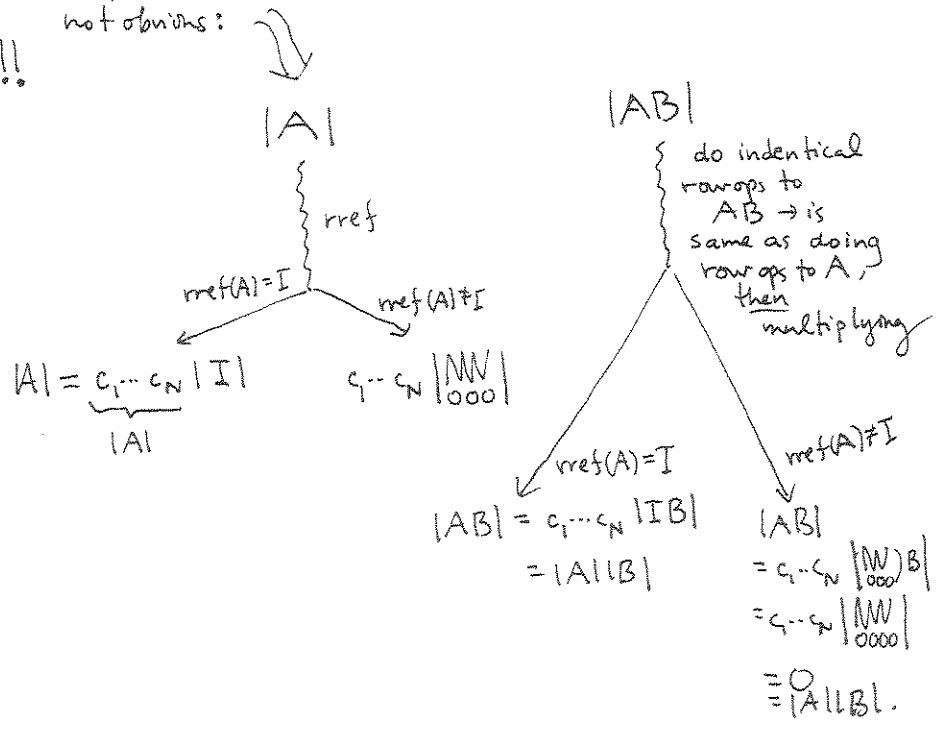 not obvious:
!!
|A|
rref
rref(A)=I
rref(A)≠I
|A| = c₁⋯c_N |I|
|A|
c₁⋯c_N |NW
000|
|AB|
do indentical
row ops to
AB → is
same as doing
row ops to A,
then
multiplying
rref(A)=I
rref(A)≠I
|AB| = c₁⋯c_N |IB|
= |A||B|
|AB|
= c₁⋯c_N |NW
000)B|
= c₁⋯c_N |NW
0000|
= 0
= |A||B|.